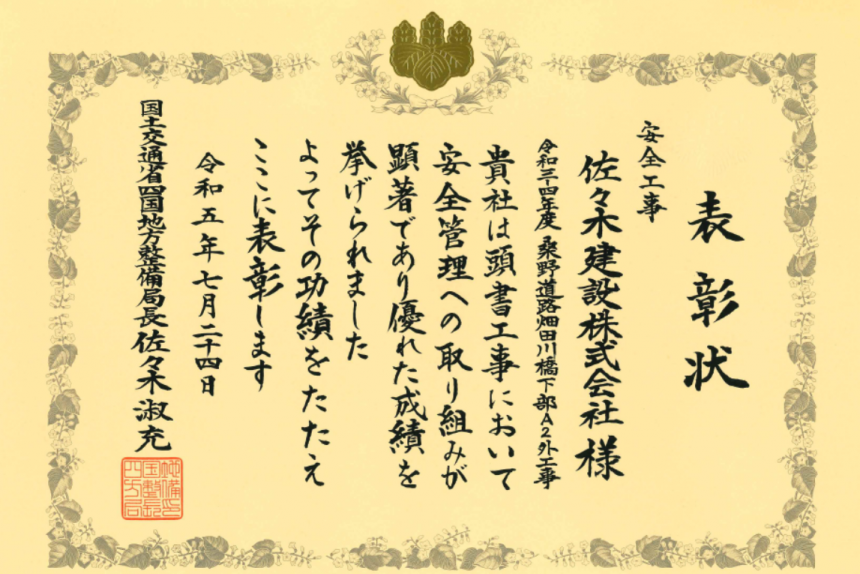 表彰状
安全工事
佐々木建設株式会社 様
令和三-四年度 桑野道路畑田川橋下部A2外工事
貴社は頭書工事において
安全管理への取り組みが
顕著であり優れた成績を
挙げられました
よってその功績をたたえ
ここに表彰します
令和五年七月二十四日
国土交通省四国地方整備局長 佐々木 淑充